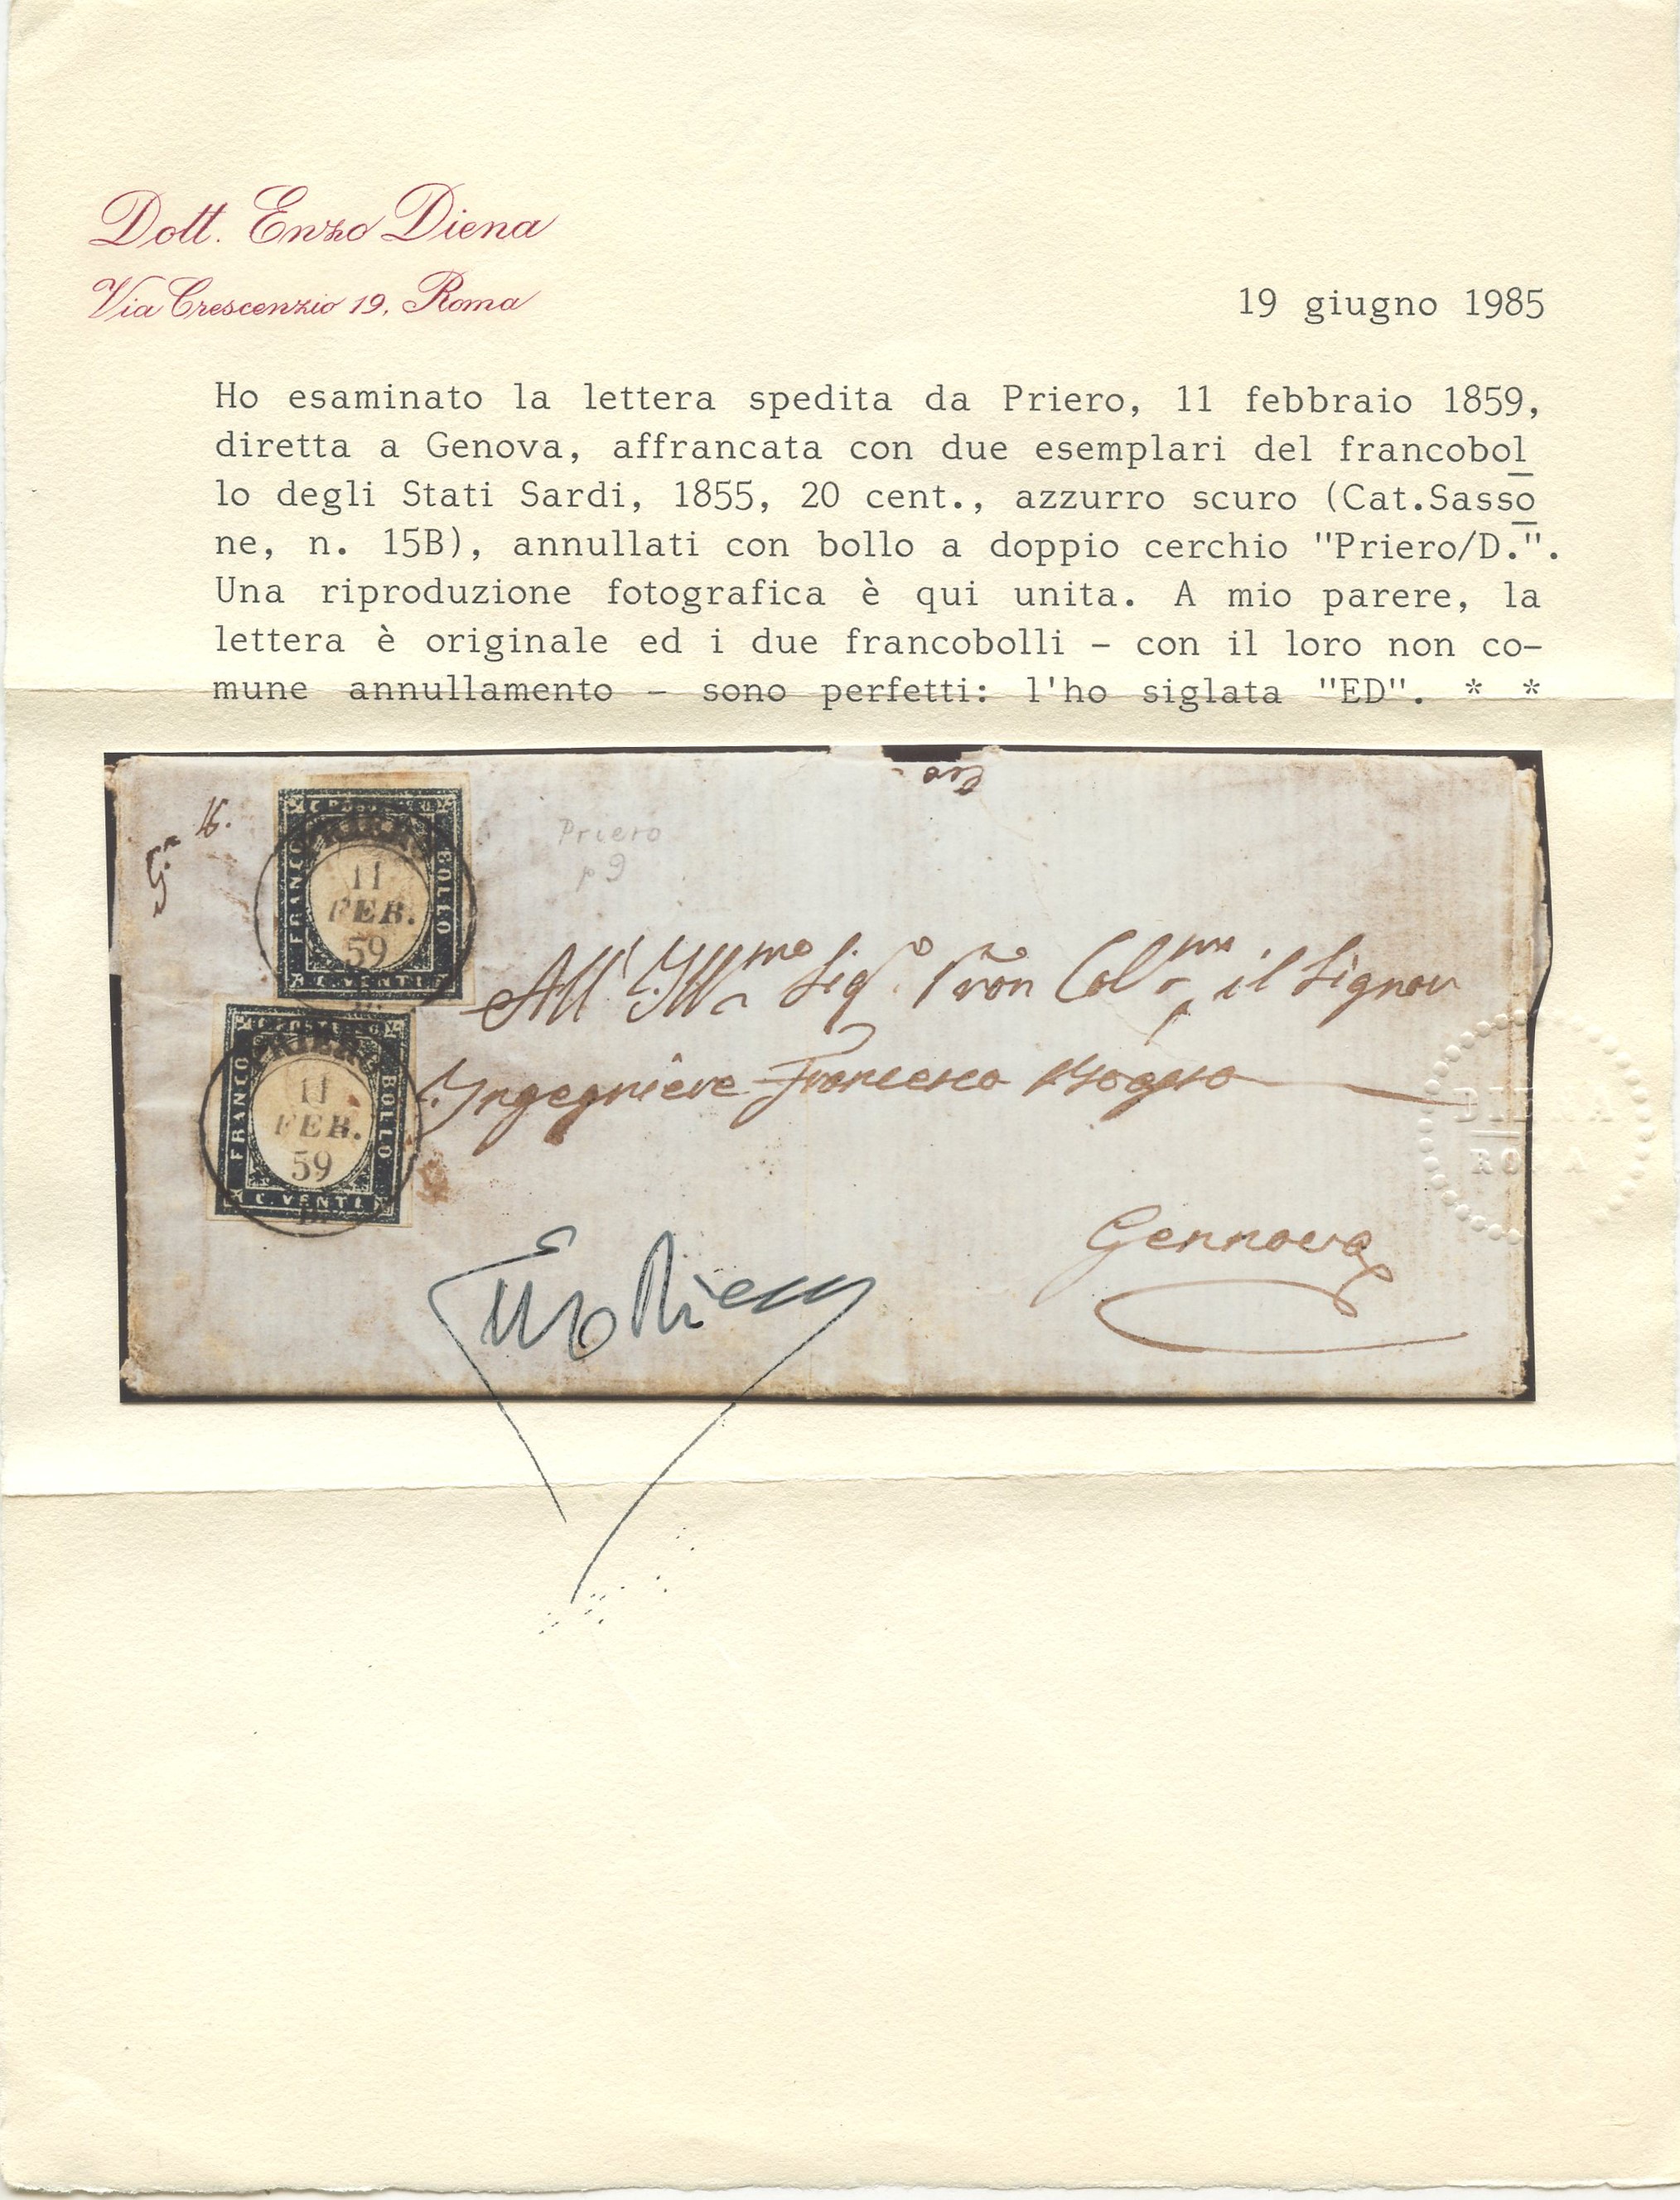 Dott. Enzo Diena
Via Crescenzio 19, Roma
19 giugno 1985
Ho esaminato la lettera spedita da Priero, 11 febbraio 1859,
diretta a Genova, affrancata con due esemplari del francobol
lo degli Stati Sardi, 1855, 20 cent., azzurro scuro (Cat.Sasso
ne, n. 15B), annullati con bollo a doppio cerchio "Priero/D.".
Una riproduzione fotografica è qui unita. A mio parere, la
lettera è originale ed i due francobolli - con il loro non co-
mune annullamento - sono perfetti: l'ho siglata "ED". * *
Priero
p 9
FRANCO
BOLLO
C. VENTI
11
FEB.
59
FRANCO
BOLLO
C. VENTI
11
FEB.
59
All' Ill.mo Sig. il Signor
Ingegniere Francesco
Gennova
Enzo Diena
DIENA
ROMA